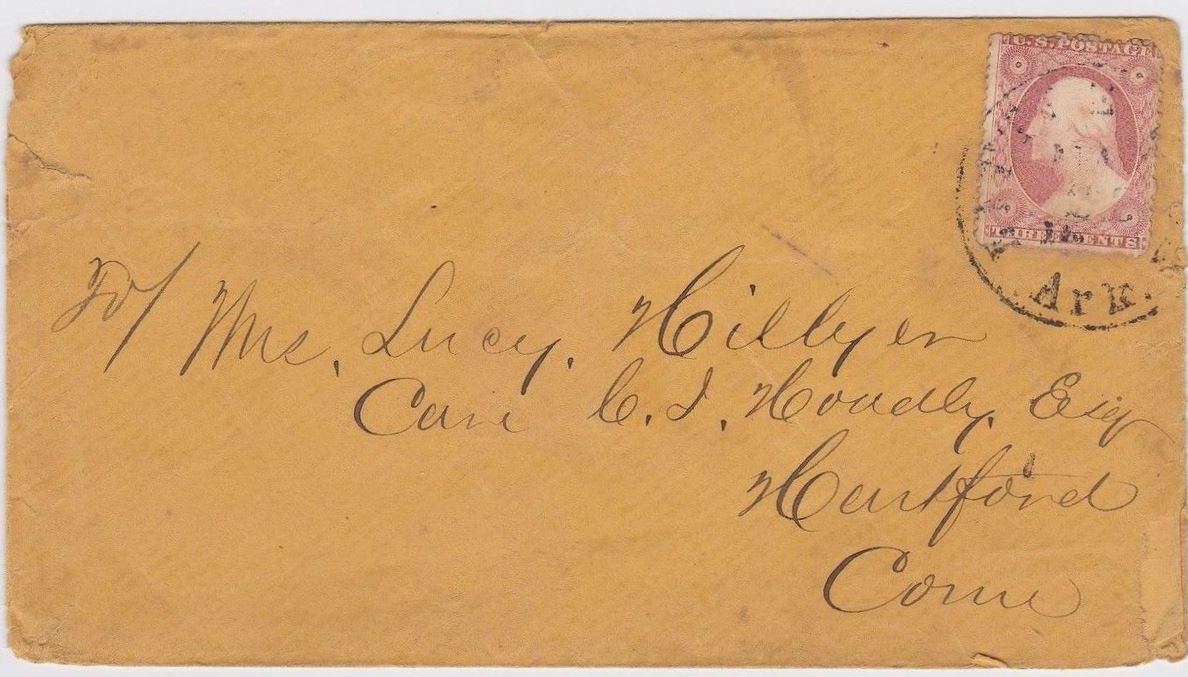 U.S. POSTAGE
THREE CENTS
Ark.
To/ Mrs. Lucy. Hillyer
Care C. J. Hoadly, Esq
Hartford
Conn